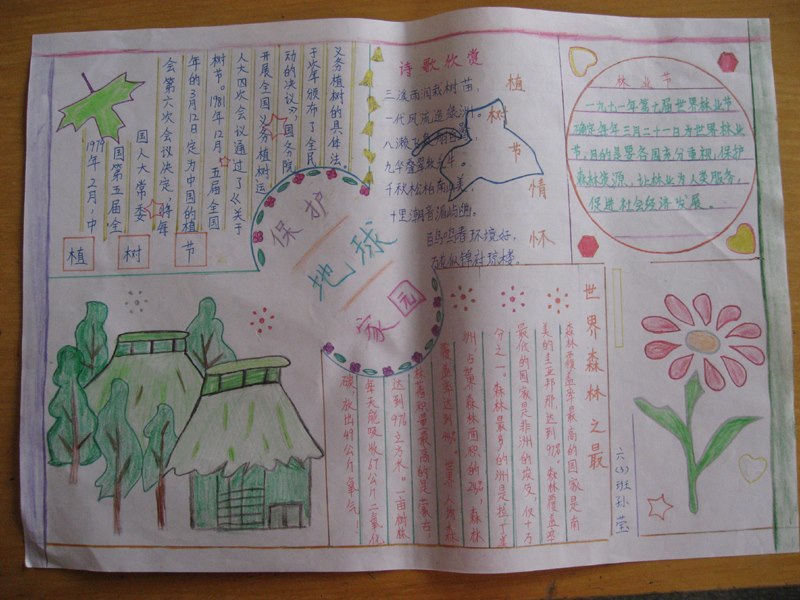 植 树 节
1979年2月,中
国第五届全
国人大常委
会第六次会议决定,将每
年的3月12日定为中国的植
树节。1981年12月,五届全国
人大四次会议通过了《关于
开展全国义务植树运
动的决议》,国务院
于次年颁布了全民
义务植树的具体法
保护
地球
家园
诗歌欣赏
植树节情怀
三浚雨润栽树苗,
一代风流造绿洲。
八濑飞
九华叠翠
千秋松柏南山美
十里潮音
百鸟鸣春环境好,
琼楼。
林业节
一九七一年第七届世界林业节
确定每年三月二十一日为世界林业
节,目的是要各国充分重视,保护
森林资源,让林业为人类服务,
促进社会经济发展。
世界森林之最
森林覆盖率最高的国家是南
美的圭亚那,达到97%,森林覆盖率
最低的国家是非洲的埃及,仅十万
分之一。森林最多的洲是拉丁美
洲,占世界森林面积的24%,森林
覆盖率达到
蓄积量最高的是蒙古,
达到976立方米。一亩树林
每天能吸收67公斤二氧化
碳,放出49公斤氧气
六(3)班孙莹